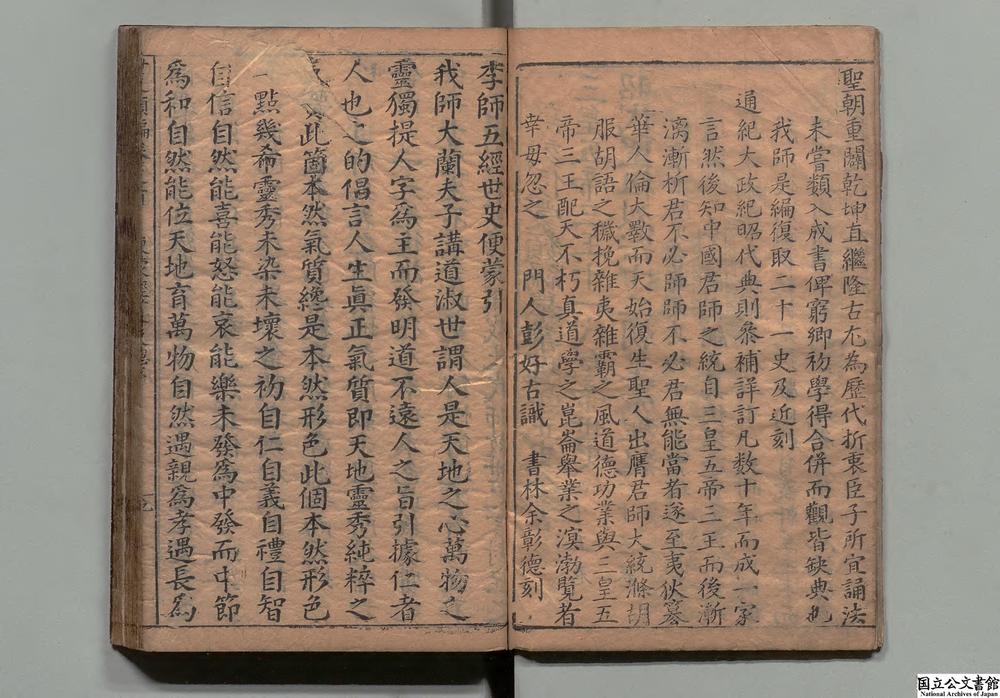 聖朝重闢乾坤直繼隆古尤為歷代折衷臣子所宜誦法
未嘗類入成書俾窮鄉初學得合併而觀皆缺典也
我師是編復取二十一史及近刻
通紀大政紀昭代典則叅補詳訂凡数十年而成一家
言然後知中國君師之統自三皇五帝三王而後漸
漓漸析君不必師師不必君無能當者遂至夷狄簒
華人倫大斁而天始復生聖人出膺君師大統滌胡
服胡語之穢挽雜夷雜霸之風道德功業與三皇五
帝三王配天不朽真道學之崑崙舉業之溟渤覽者
幸毋忽之 門人彭好古識 書林余彰德刻
李師五經世史便蒙引
我師大蘭夫子講道淑世謂人是天地之心萬物之
靈獨提人字為王而發明道不遠人之旨引據仁者
人也之的倡言人生眞正氣質即天地靈秀純粹之
此箇本然氣質纔是本然形色此個本然形色
一點幾希靈秀未染未壞之初自仁自義自禮自智
自信自然能喜能怒能哀能樂未發為中發而中節
為和自然能位天地育萬物自然遇親為孝遇長為
国立公文書館
National Archives of Japan